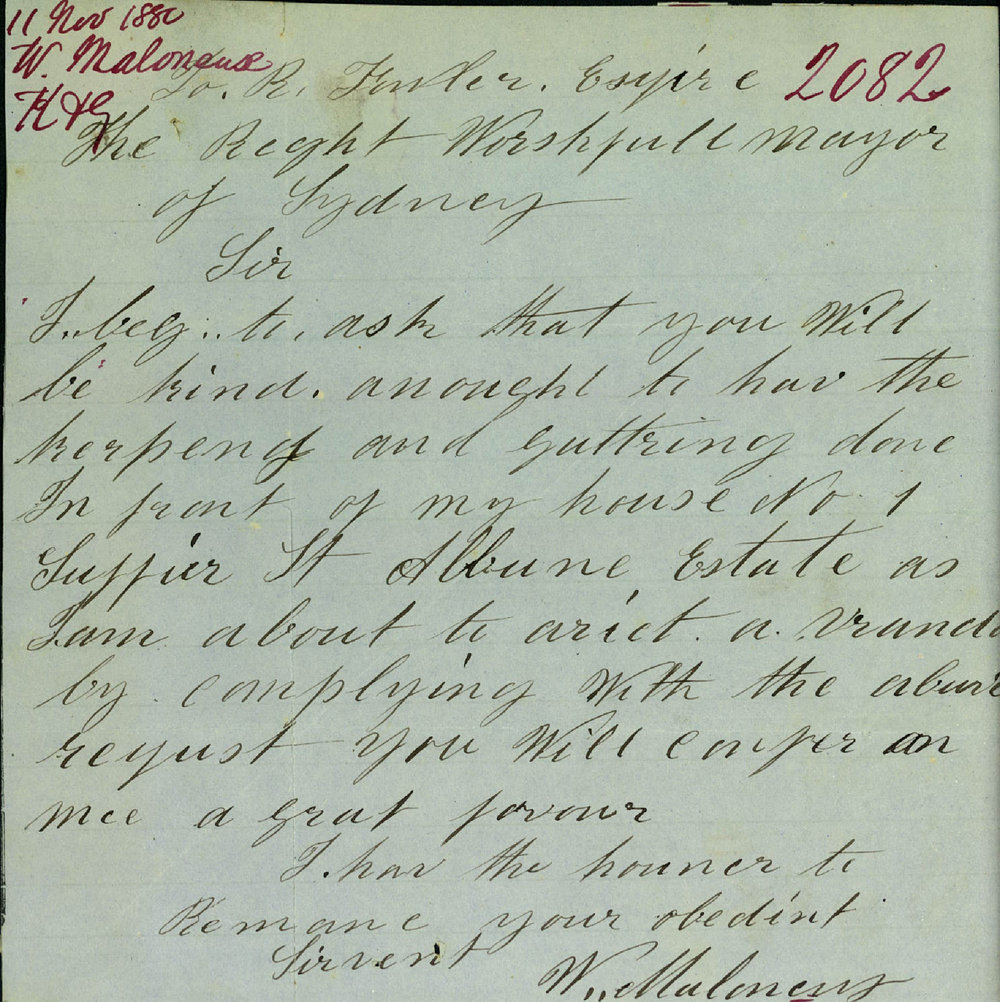 11 Nov 1880
W. Malonause
K & G
2082
To. R. Fowler. Esqire
The Reght Worshpull Mayor
of Sydney
Sir
I..beg..to, ask that you Will
be kind. anought to hav the
kerpeng and guttring done
In front of my house No 1
Suffier St Albune Estate as
I am about to arict. a. Vranda
by complying With the abuve
requst you Will conper on
mee a grat favour
I. hav the houner to
Remane your obedint
Sirvent
W,, Maloneny